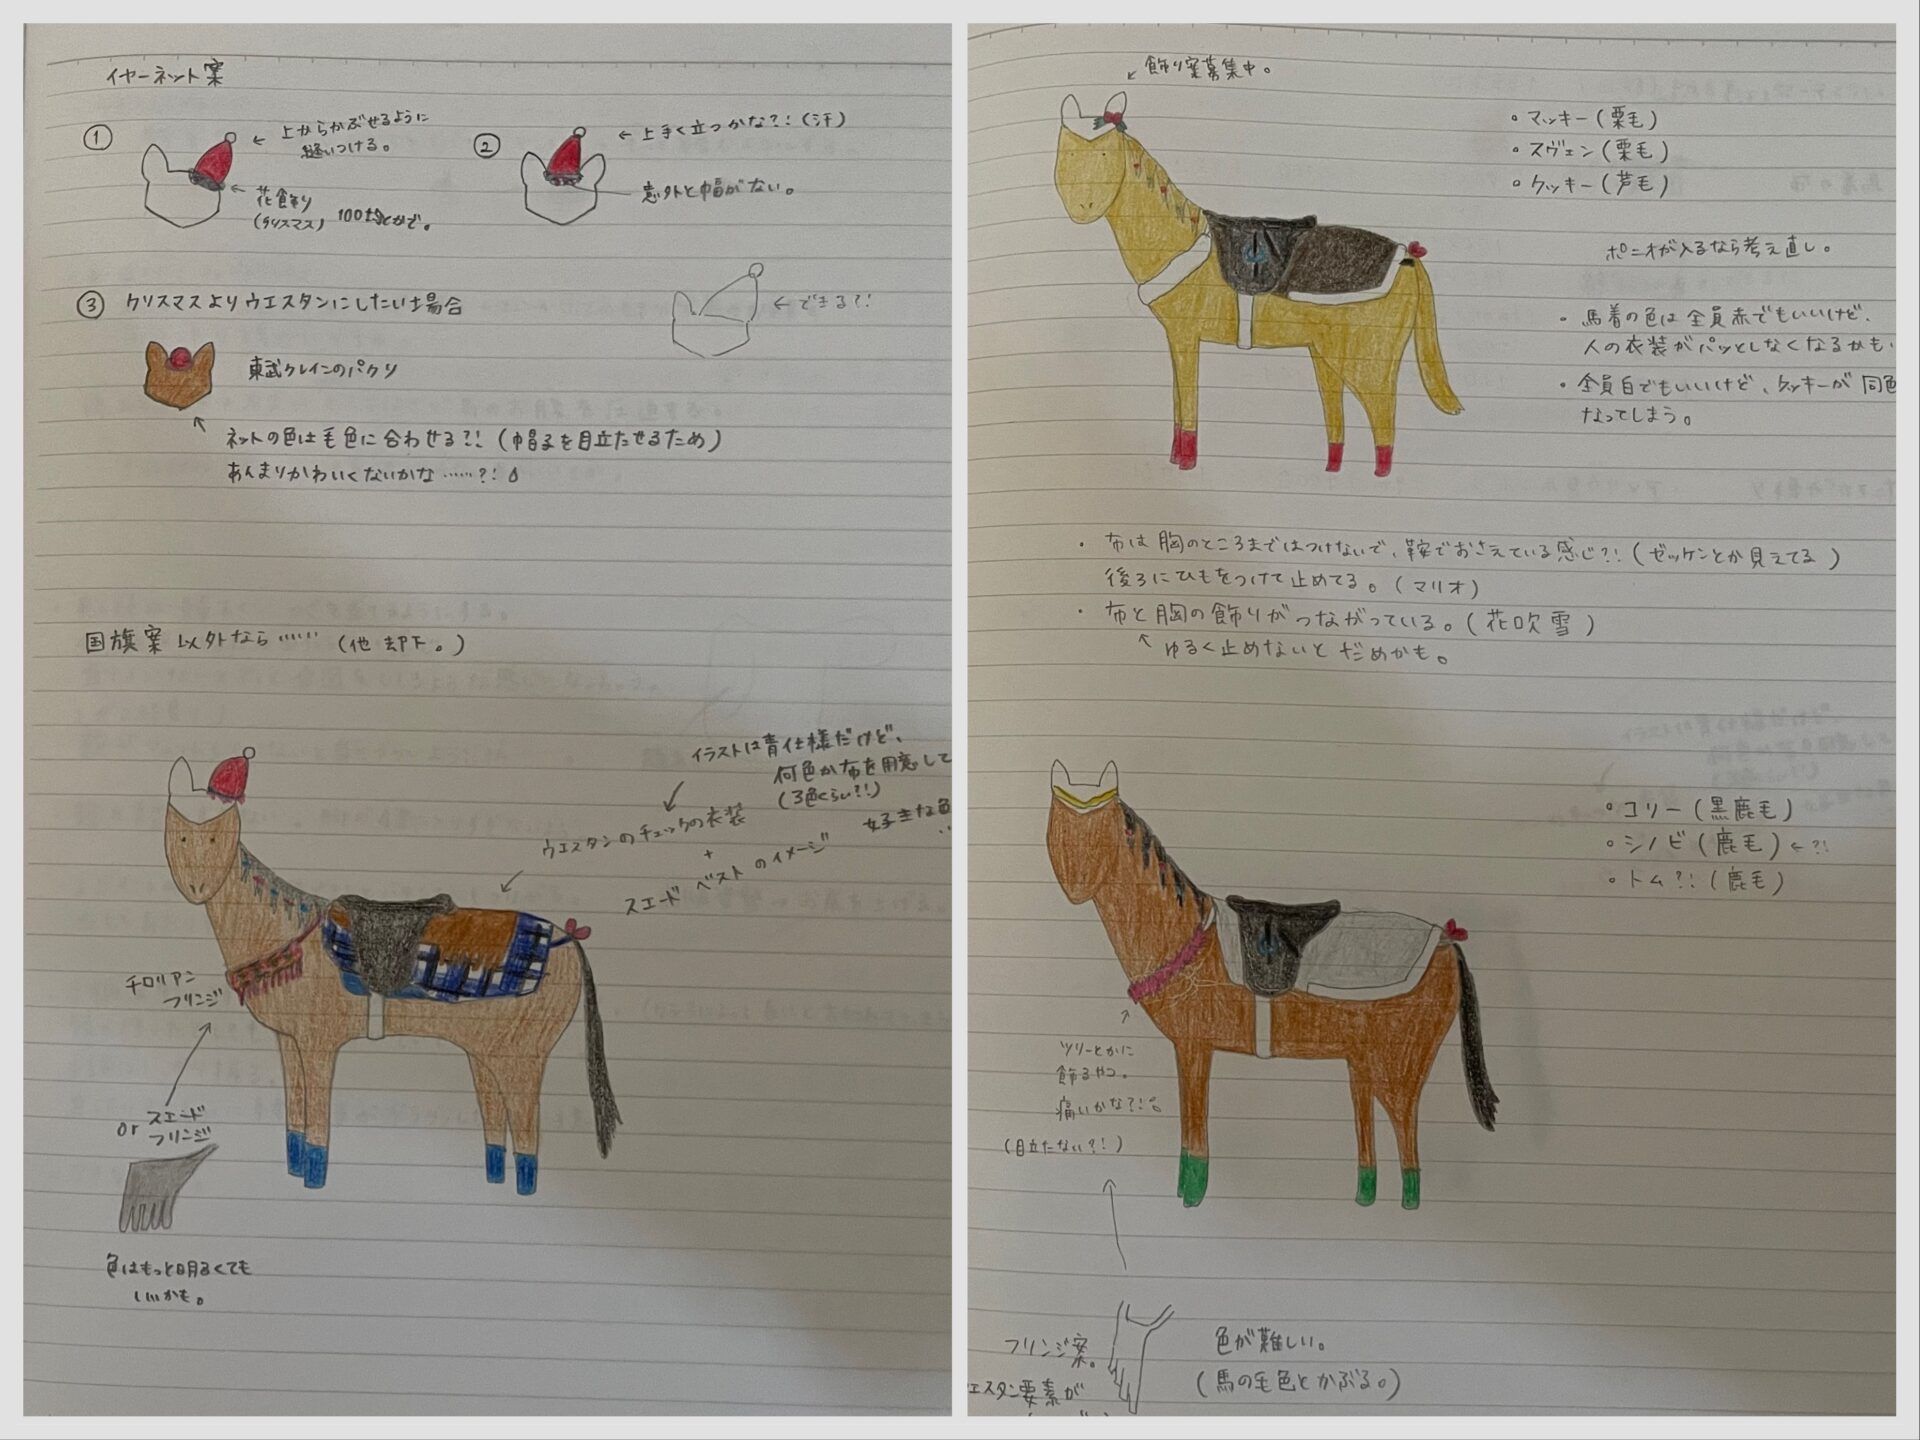 イヤーネット案
①
← 上からかぶせるように
縫いつける。
← 花飾り
(クリスマス) 100均とかで。
②
← 上手く立つかな?!(汗)
意外と幅がない。
← できる?!
③ クリスマスよりウエスタンにしたい場合
東武クレインのパクリ
ネットの色は毛色に合わせる?!(帽子を目立たせるため)
あんまりかわいくないかな……?!
国旗案以外なら…… (他 却下。)
イラストは青仕様だけど、
何色か布を用意して
(3色くらい?!)
好きな色
ウエスタンのチェックの衣装
+
スエード ベストのイメージ
チロリアン
フリンジ
or スエード
フリンジ
色はもっと明るくても
いいかも。
飾り案募集中。
・マッキー(栗毛)
・スヴェン(栗毛)
・クッキー(芦毛)
ポニオが入るなら考え直し。
・馬着の色は全員赤でもいいけど、
人の衣装がパッとしなくなるかも・
・全員白でもいいけど、クッキーが同色
なってしまう。
・布は胸のところまではつけないで、鞍でおさえている感じ?!(ゼッケンとか見えてる)
後ろにひもをつけて止めてる。(マリオ)
・布と胸の飾りがつながっている。(花吹雪)
↑ ゆるく止めないとだめかも。
・コリー(黒鹿毛)
・シノビ(鹿毛)←?!
・トム?!(鹿毛)
ツリーとかに
飾るやつ。
痛いかな?!
(目立たない?!)
フリンジ案。
エスタン要素が
色が難しい。
(馬の毛色とかぶる。)